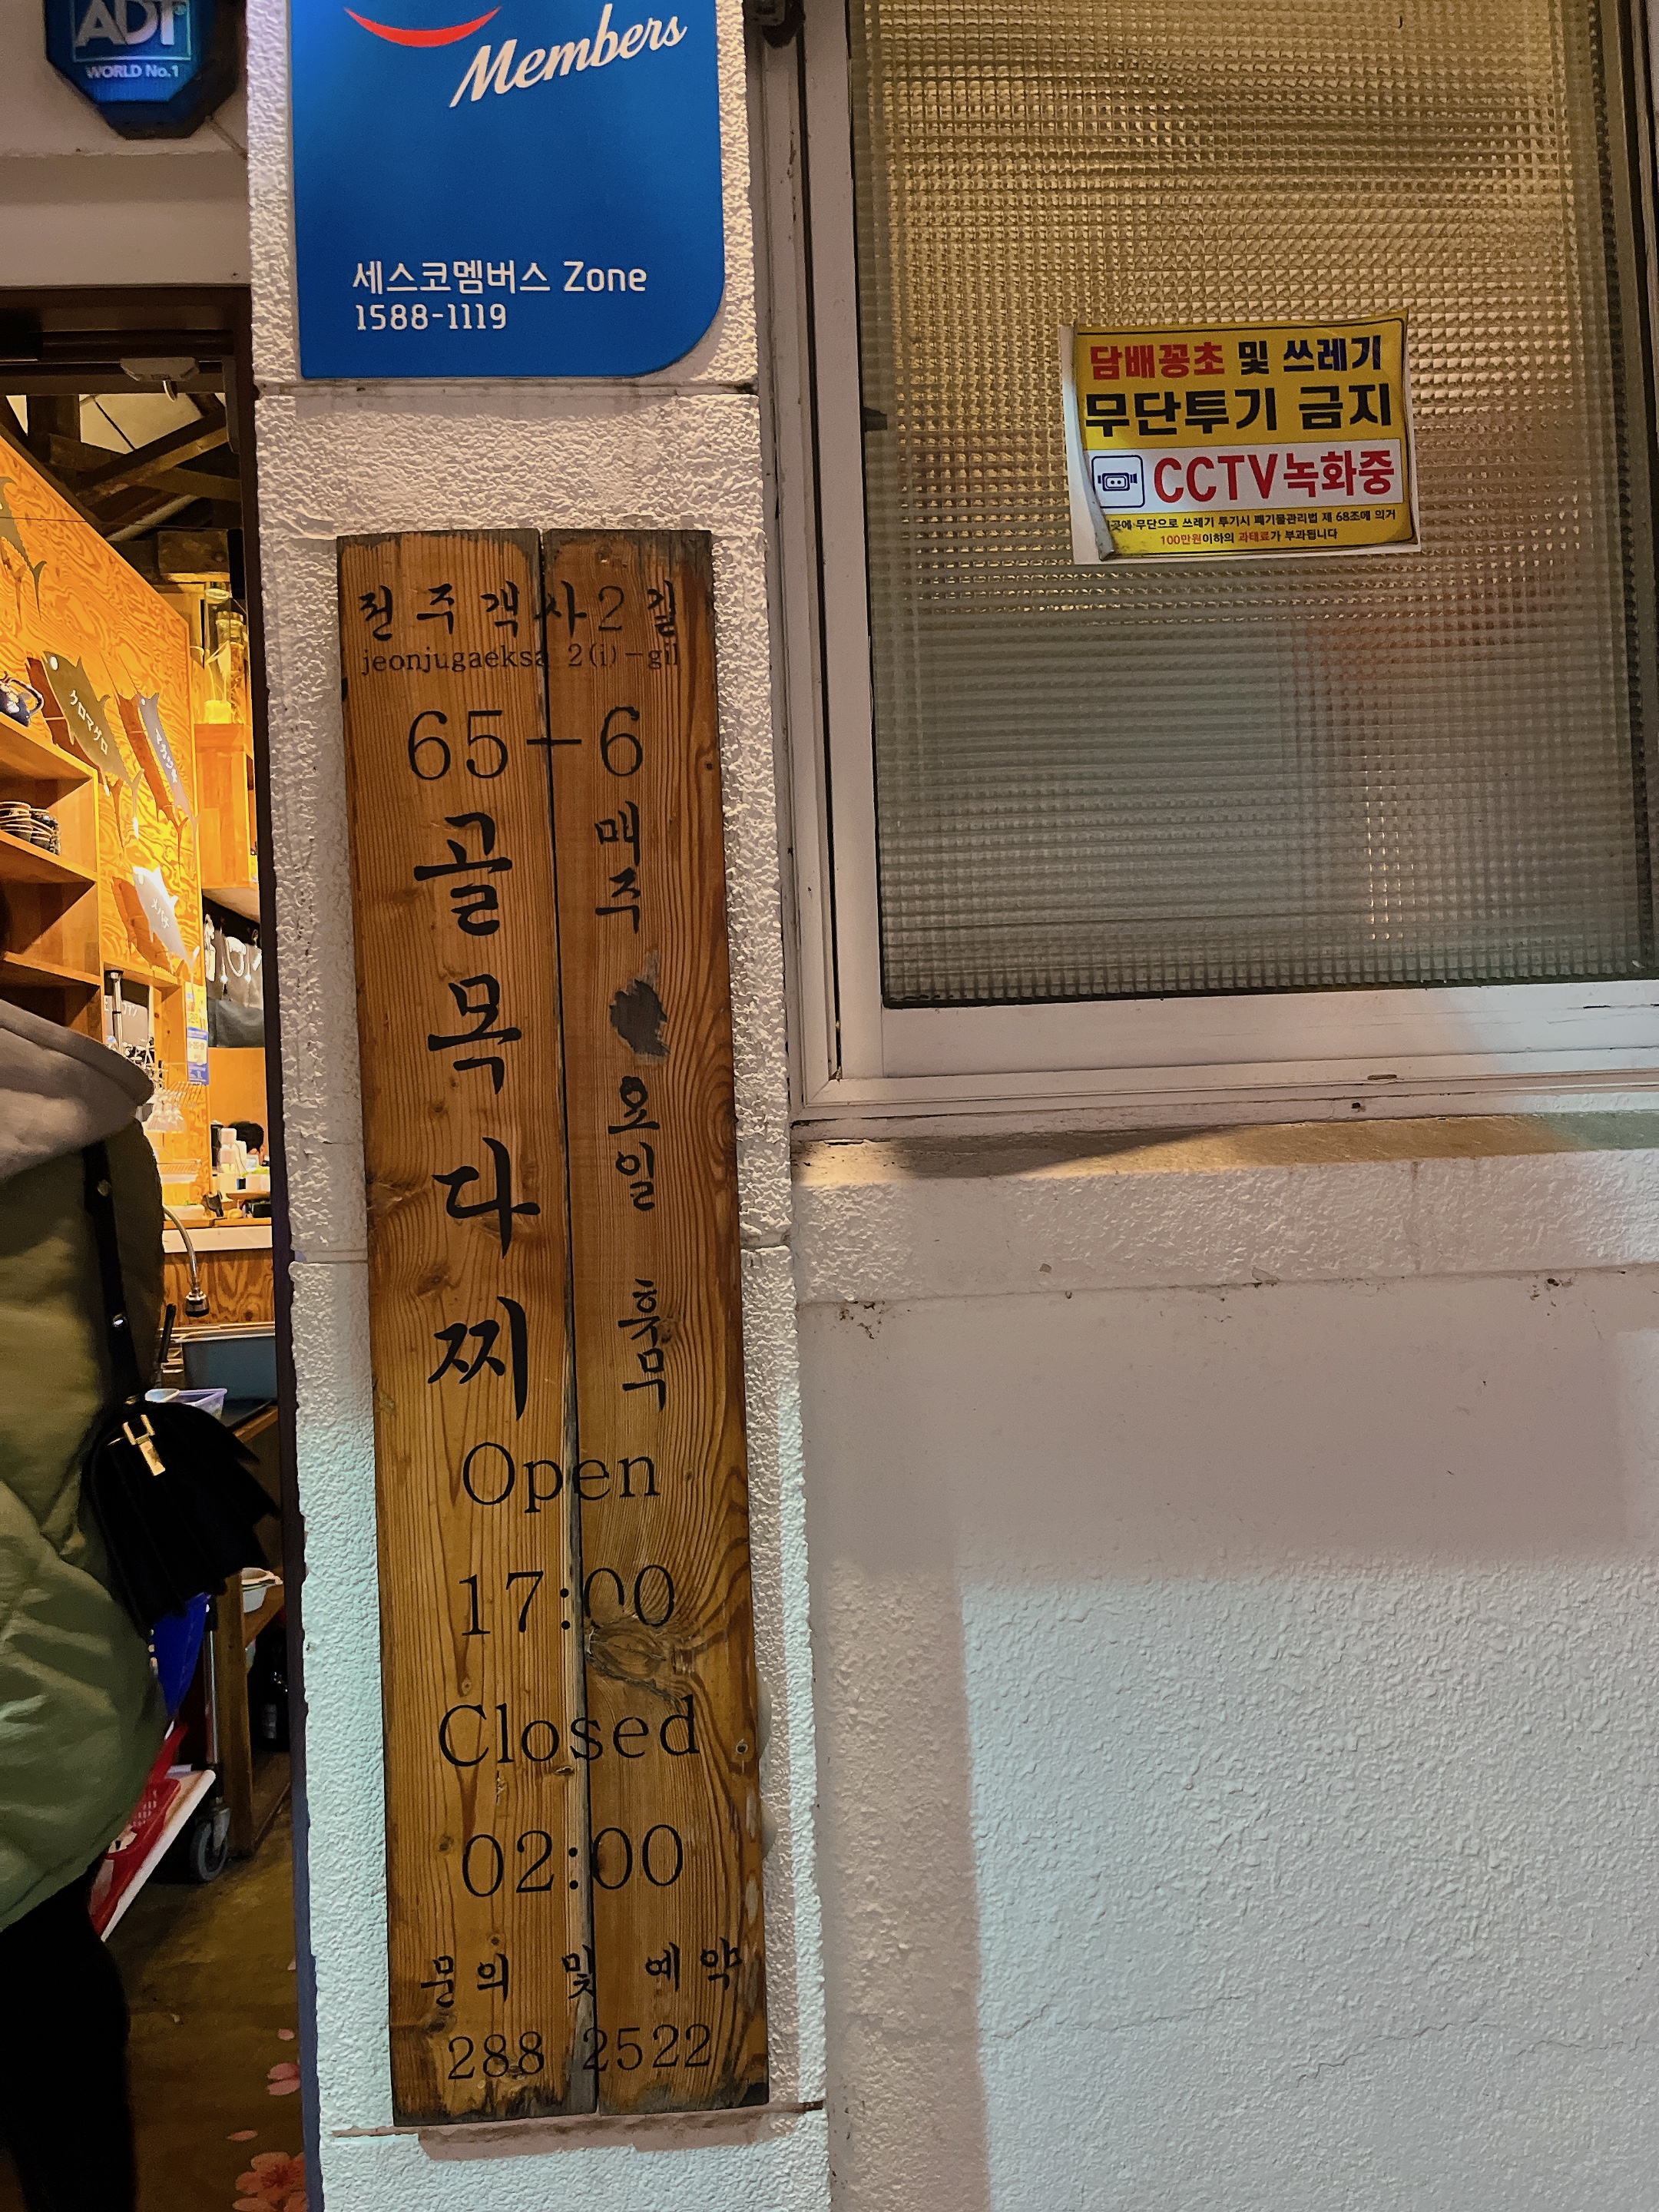 ADT
WORLD No.1
Members
세스코멤버스 Zone
1588-1119
담배꽁초 및 쓰레기
무단투기 금지
CCTV녹화중
곳에 무단으로 쓰레기 투기시 폐기물관리법 제 68조에 의거
100만원이하의 과태료가 부과됩니다
전주객사2길
jeonjugaeksa 2(i)-gil
65-6
골목다찌
매주 요일 휴무
Open
17:00
Closed
02:00
문의 및 예약
288 2522
クロマグロ
メバチ